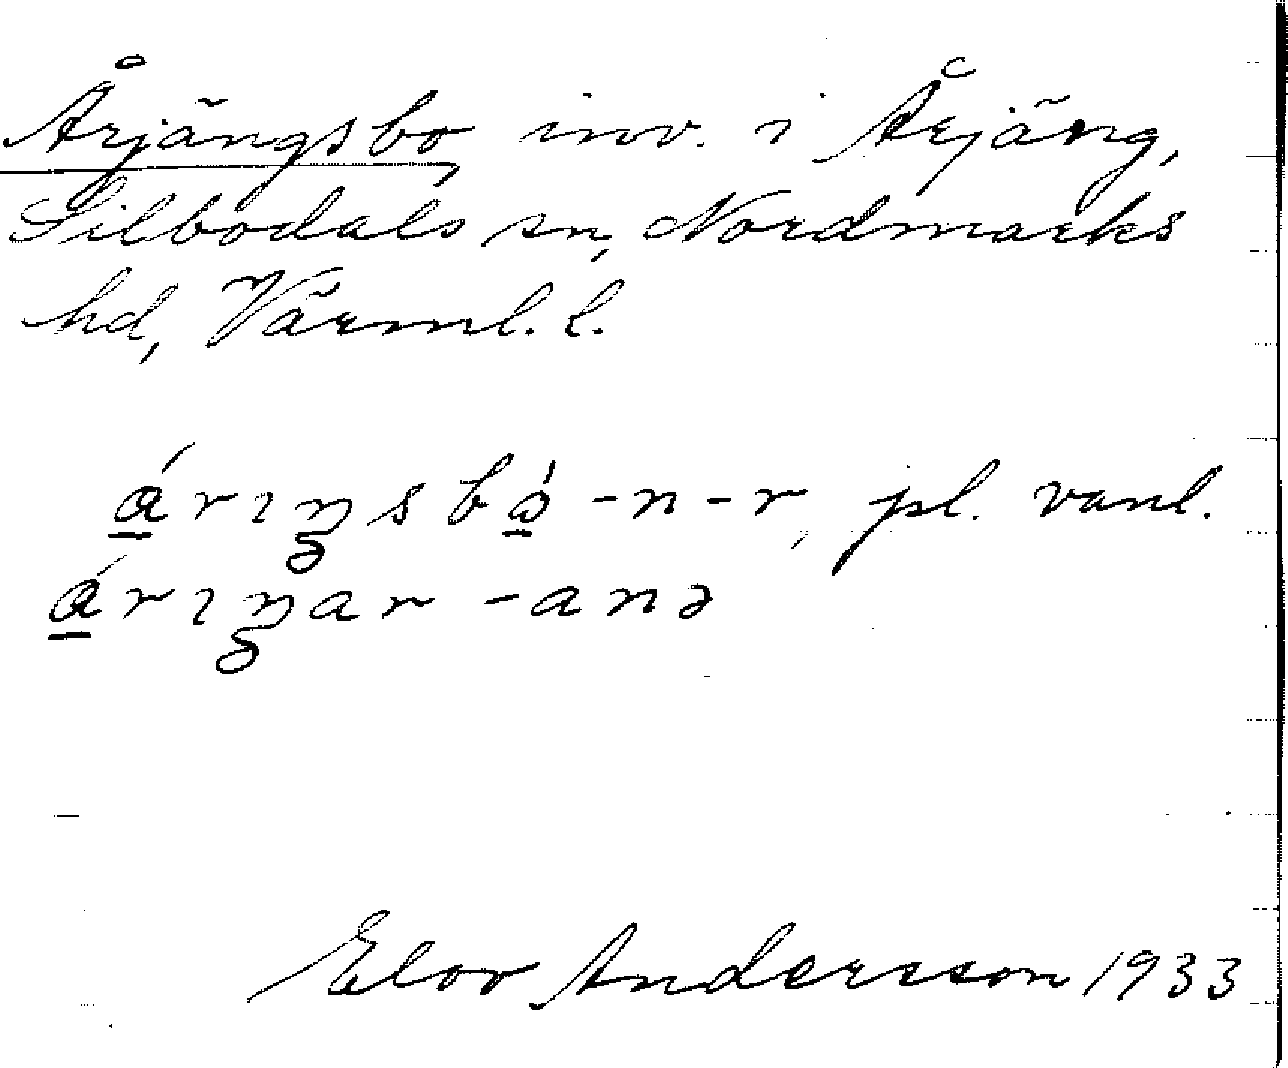 Årjängsbo, inv. i Årjäng,
Silbodals sn, Nordmarks
hd, Värml. l.
á̱rıŋsbó̱ -n -r, pl. vanl.
á̱rıŋar -anə
Elov Andersson 1933